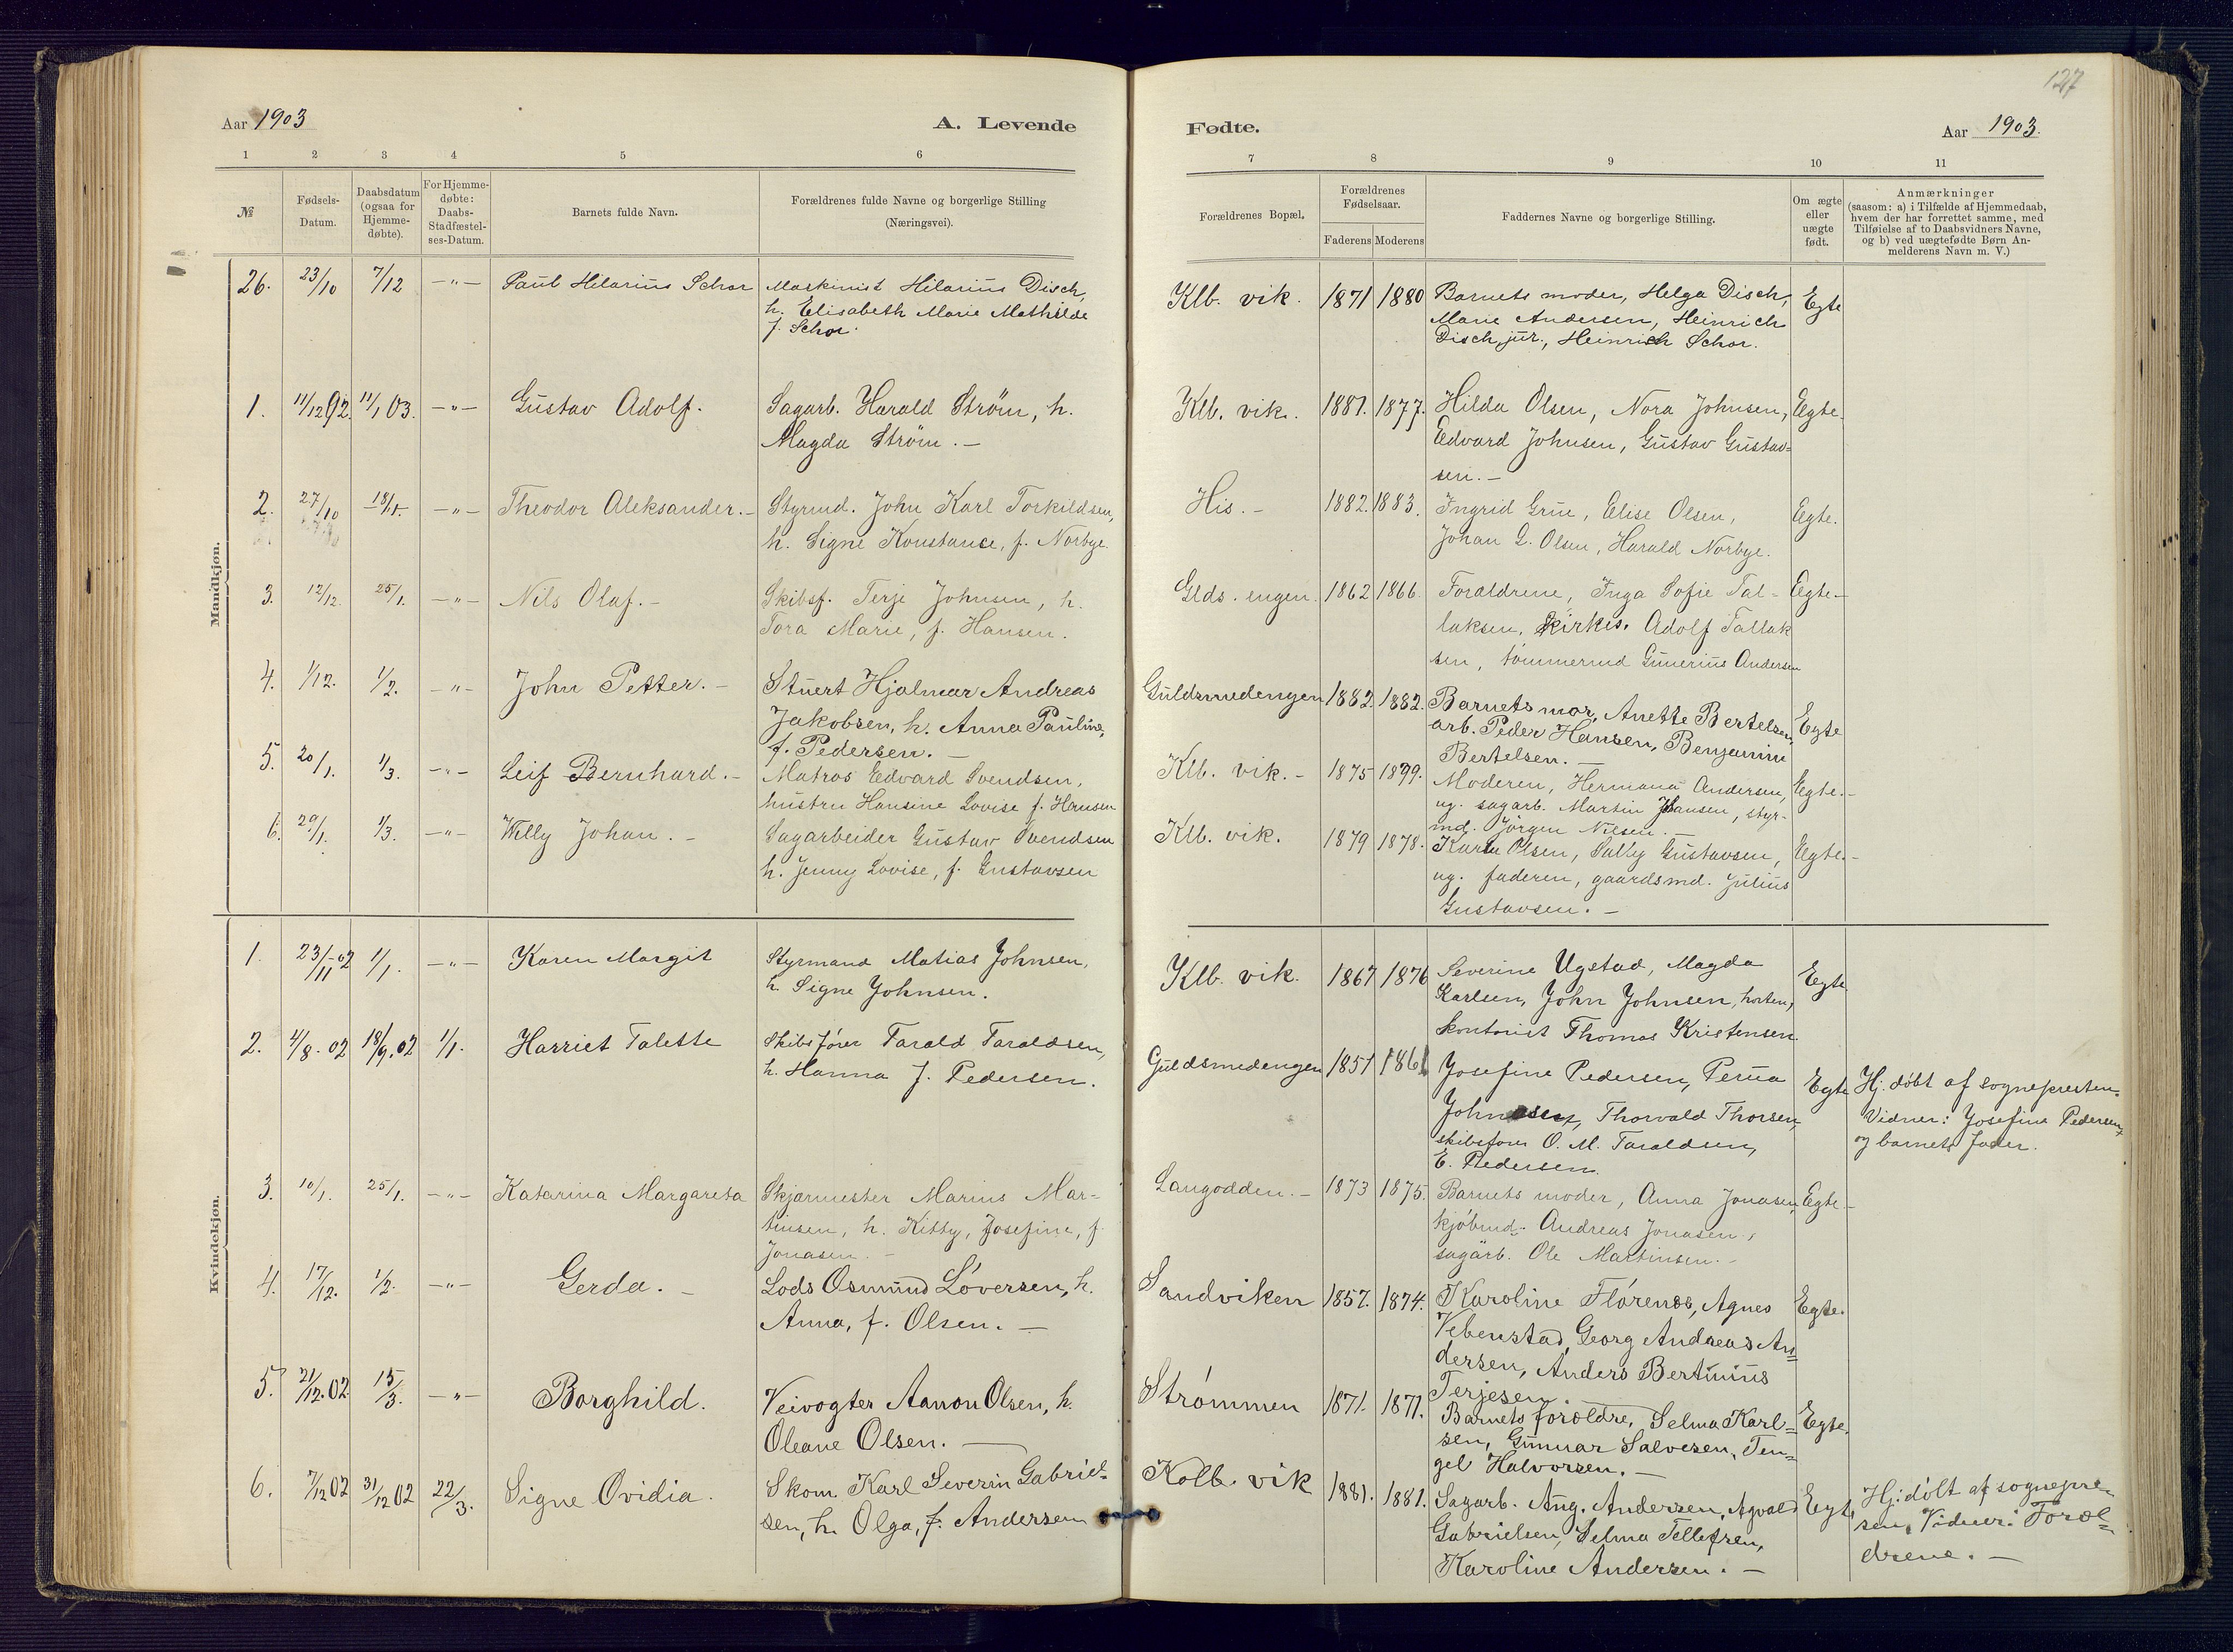 127
Aar 1903 A. Levende
Fødte. Aar 1903.
1 2 3 4 5 6
7 8 9 10 11
№
Fødsels-
Datum.
Daabsdatum
(ogsaa for
Hjemme-
døbte).
For Hjemme-
døbte:
Daabs-
Stadfæstel-
ses-Datum.
Barnets fulde Navn.
Forældrenes fulde Navne og borgerlige Stilling
(Næringsvei).
Forældrenes Bopæl.
Forældrenes
Fødselsaar.
Faderens Moderens
Faddernes Navne og borgerlige Stilling.
Om ægte
eller
uægte
født.
Anmærkninger
(saasom: a) i Tilfælde af Hjemmedaab,
hvem der har forrettet samme, med
Tilføielse af to Daabsvidners Navne,
og b) ved uægtefødte Børn An-
melderens Navn m. V.)
Mandkjøn.
26. 23/10 7/12 -"- Paul Hilarius Schor
Maskinist Hilarius Disch,
h. Elisabeth Marie Mathilde
f. Schor.
Klb. vik. 1871 1880
Barnets moder, Helga Disch,
Marie Andersen, Heinrich
Disch, jur., Heinrich Schor.
Egte
1. 11/12 92. 11/1 03. -"- Gustav Adolf.
Sagarb. Harald Strøm, h.
Magda Strøm. -
Klb. vik. 1881. 1877.
Hilda Olsen, Nora Johnsen,
Edvard Johnsen, Gustav Gustav=
sen. -
Egte.
2. 27/10 18/1. -"- Theodor Aleksander. -
Styrmd. John Karl Torkildsen,
h. Signe Konstance, f. Norbye.
His. - 1882. 1883.
Ingrid Grue, Elise Olsen,
Johan G. Olsen, Harald Norbye.
Egte.
3. 12/12. 25/1. -"- Nils Olaf. -
Skibsf. Terje Johnsen, h.
Tora Marie, f. Hansen.
Glds. engen. 1862 1866.
Forældrene, Inga Sofie Tal-
laksen, kirkes. Adolf Tallak
sen, tømmermd Gunerius Andersen
Egte. -
4. 1/12. 1/2. -"- John Petter. -
Stuert Hjalmar Andreas
Jakobsen, h. Anna Pauline,
f. Pedersen. -
Guldsmedengen 1882. 1882.
Barnets mor, Anette Bertelsen,
arb. Peder Hansen, Benjamin
Bertelsen. -
Egte
5. 20/1. 1/3. -"- Leif Bernhard. -
Matros Edvard Svendsen,
hustru Hansine Lovise f. Hansen
Klb. vik. - 1875 1879.
Moderen, Hermana Andersen,
ug. sagarb. Martin Hansen, styr-
md. Jørgen Nilsen. -
Egte. -
6. 29/1. 1/3. -"- Willy Johan. -
Sagarbeider Gustav Svendsen
h. Jenny Lovise, f. Gustavsen
Klb. vik. 1879 1878.
Karla Olsen, Sally Gustavsen,
ug. faderen, gaardsmd. Julius
Gustavsen. -
Egte. -
Kvindekjøn.
1. 23/11-02 1/1. -"- Karen Margit
Styrmand Matias Johnsen,
h. Signe Johnsen.
Klb. vik. 1867 1876
Severine Ugstad, Magda
Karlsen, John Johnsen, horten,
kontorist Thomas Kristensen.
Egte
2. 4/8. 02 18/9. 02 1/1. Harriet Talette
Skibsfører Tarald Taraldsen,
h. Hanna f. Pedersen.
Guldsmedengen 1851 1861
Josefine Pedersen, Perua
Johnsen, Thorvald Thorsen,
skibsfører O. M. Taraldsen,
E. Pedersen.
Egte
Hj. døbt af sognepresten.
Vidner: Josefine Pedersen,
og barnets fader.
3. 10/1. 25/1. -"- Katarina Margareta
Skjærmester Marius Mar-
tinsen, h. Kitty, Josefine, f.
Jonasen. -
Langodden. - 1873 1875.
Barnets moder, Anna Jonasen,
kjøbmd. Andreas Jonasen,
sagarb. Ole Martinsen. -
Egte. -
4. 17/12. 1/2. -"- Gerda. -
Lods Osmund Løversen, h.
Anna, f. Olsen. -
Sandviken 1857. 1874.
Karoline Flørenes, Agnes
Vebenstad, Georg Andreas An=
dersen, Anders Bertinius
Terjesen.
Egte.
5. 21/12. 02 15/3. -"- Borghild.
Veivogter Aanon Olsen, h.
Oleane Olsen. -
Strømmen 1871. 1871.
Barnets forældre, Selma Karl=
sen, Gunnar Salvesen, Ten=
gel Halvorsen. -
Egte.
6. 7/12 02 31/12 02 22/3. Signe Ovidia.
Skom. Karl Severin Gabriel=
sen, h. Olga, f. Andersen
Kolb. vik 1881. 1881.
Sagarb. Aug. Andersen, Agvald
Gabrielsen, Selma Tellefsen,
Karoline Andersen. -
Egte
Hj. døbt af sognepre=
sten. Vidner: Foræl=
drene. -